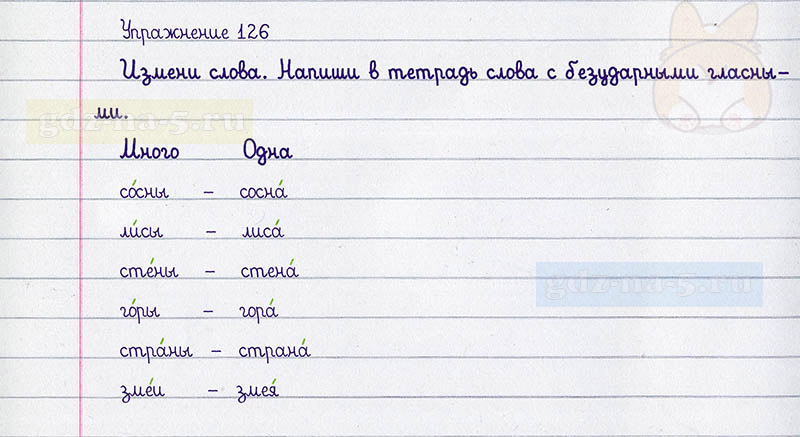 Упражнение 126
Измени слова. Напиши в тетрадь слова с безударными гласны-
ми.
gdz-na-5.ru
Много Одна
со́сны – сосна́
ли́сы – лиса́
сте́ны – стена́
gdz-na-5.ru
го́ры – гора́
стра́ны – страна́
зме́и – змея́